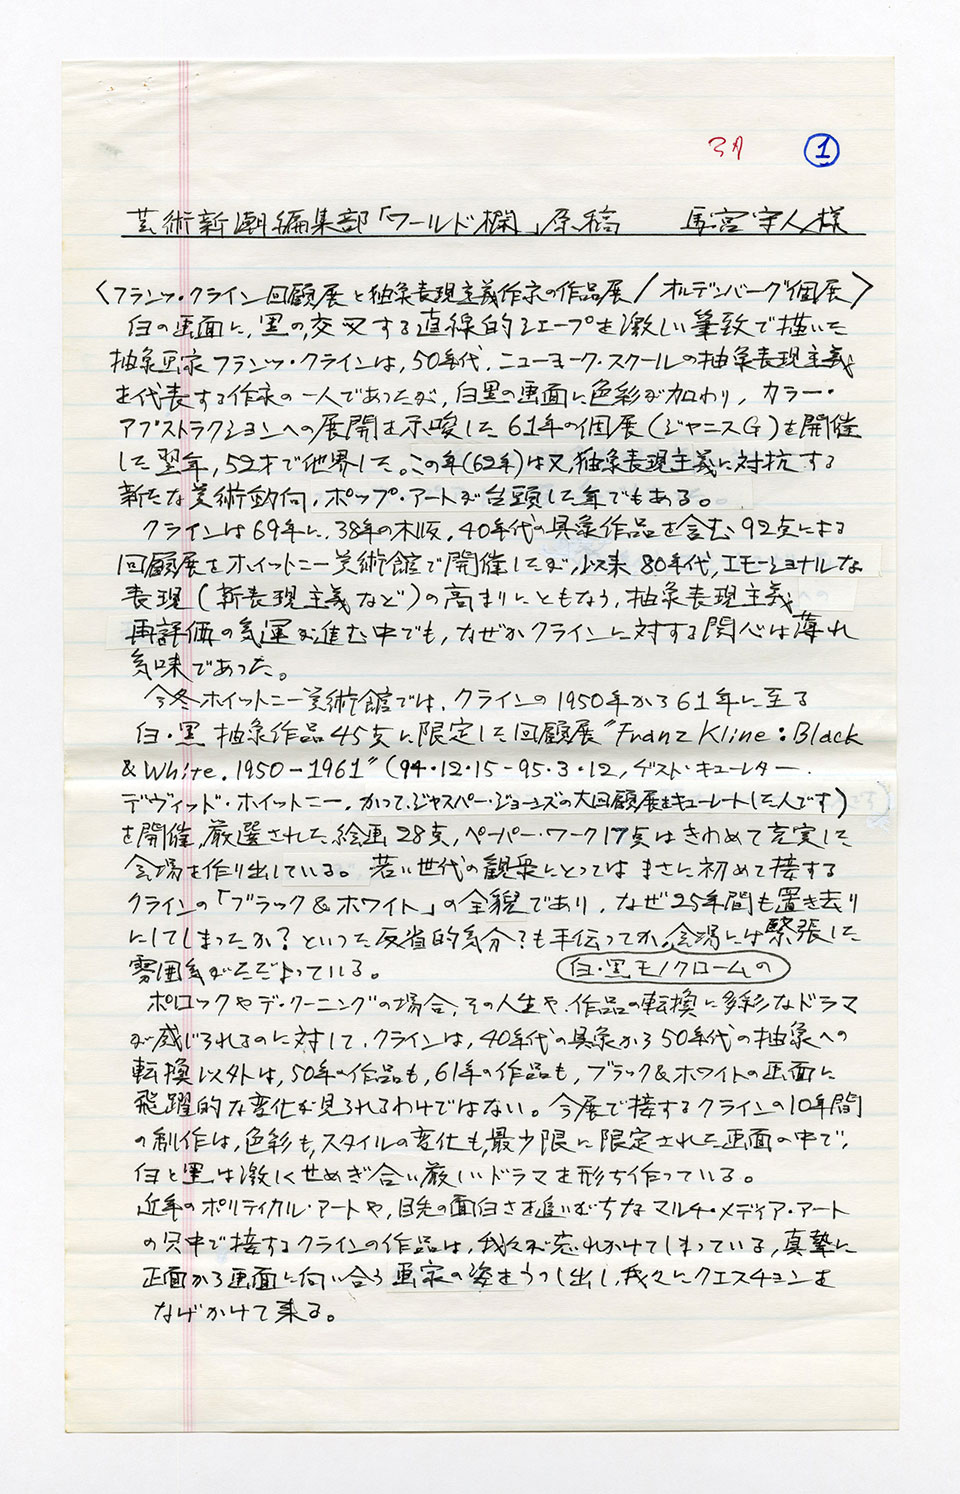 3月 ①
芸術新潮編集部「ワールド欄」原稿 馬宮守人様
〈フランツ・クライン回顧展と抽象表現主義作家の作品展/オルデンバーグ個展〉
白の画面に,黒の,交叉する直線的シェープを激しい筆致で描いた
抽象画家フランツ・クラインは,50年代,ニューヨーク・スクールの抽象表現主義
を代表する作家の一人であったが,白黒の画面に色彩が加わり,カラー・
アブストラクションへの展開を示唆した61年の個展(ジャニスG)を開催
した翌年,52才で他界した。この年(62年)は又,抽象表現主義に対抗する
新たな美術動向,ポップ・アートが台頭した年でもある。
クラインは69年に,38年の木版,40年代の具象作品を含む92点による
回顧展をホイットニー美術館で開催したが,以来80年代,エモーショナルな
表現(新表現主義など)の高まりにともなう,抽象表現主義
再評価の気運が進む中でも,なぜかクラインに対する関心は薄れ
気味であった。
今冬ホイットニー美術館では,クラインの1950年から61年に至る
白・黒 抽象作品45点に限定した回顧展"Franz Kline:Black
& White.1950-1961"(94・12・15-95・3・12,ゲスト・キューレター.
デヴィッド・ホイットニー.かつて,ジャスパー・ジョーンズの大回顧展をキューレートした人です)
を開催,厳選された絵画28点,ペーパー・ワーク17点はきわめて充実した
会場を作り出している。若い世代の観衆にとってはまさに初めて接する
クラインの「ブラック&ホワイト」の全貌であり,なぜ25年間も置き去り
にしてしまったか?といった反省的気分?も手伝ってか,会場には緊張した
雰囲気がただよっている。 白・黒モノクロームの
ポロックやデ・クーニングの場合,その人生や,作品の転換に多彩なドラマ
が感じられるのに対して,クラインは,40年代の具象から50年代の抽象への
転換以外は,50年の作品も,61年の作品も,ブラック&ホワイトの画面に
飛躍的な変化が見られるわけではない。今展で接するクラインの10年間
の制作は,色彩も,スタイルの変化も,最少限に限定された画面の中で,
白と黒は激しくせめぎ合い厳しいドラマを形ち作っている。
近年のポリティカル・アートや,目先の面白さを追いがちなマルチ・メディア・アート
の只中で接するクラインの作品は,我々が忘れかけてしまっている,真摯に
正面から画面に向い合う画家の姿をうつし出し,我々にクエスチョンを
なげかけて来る。